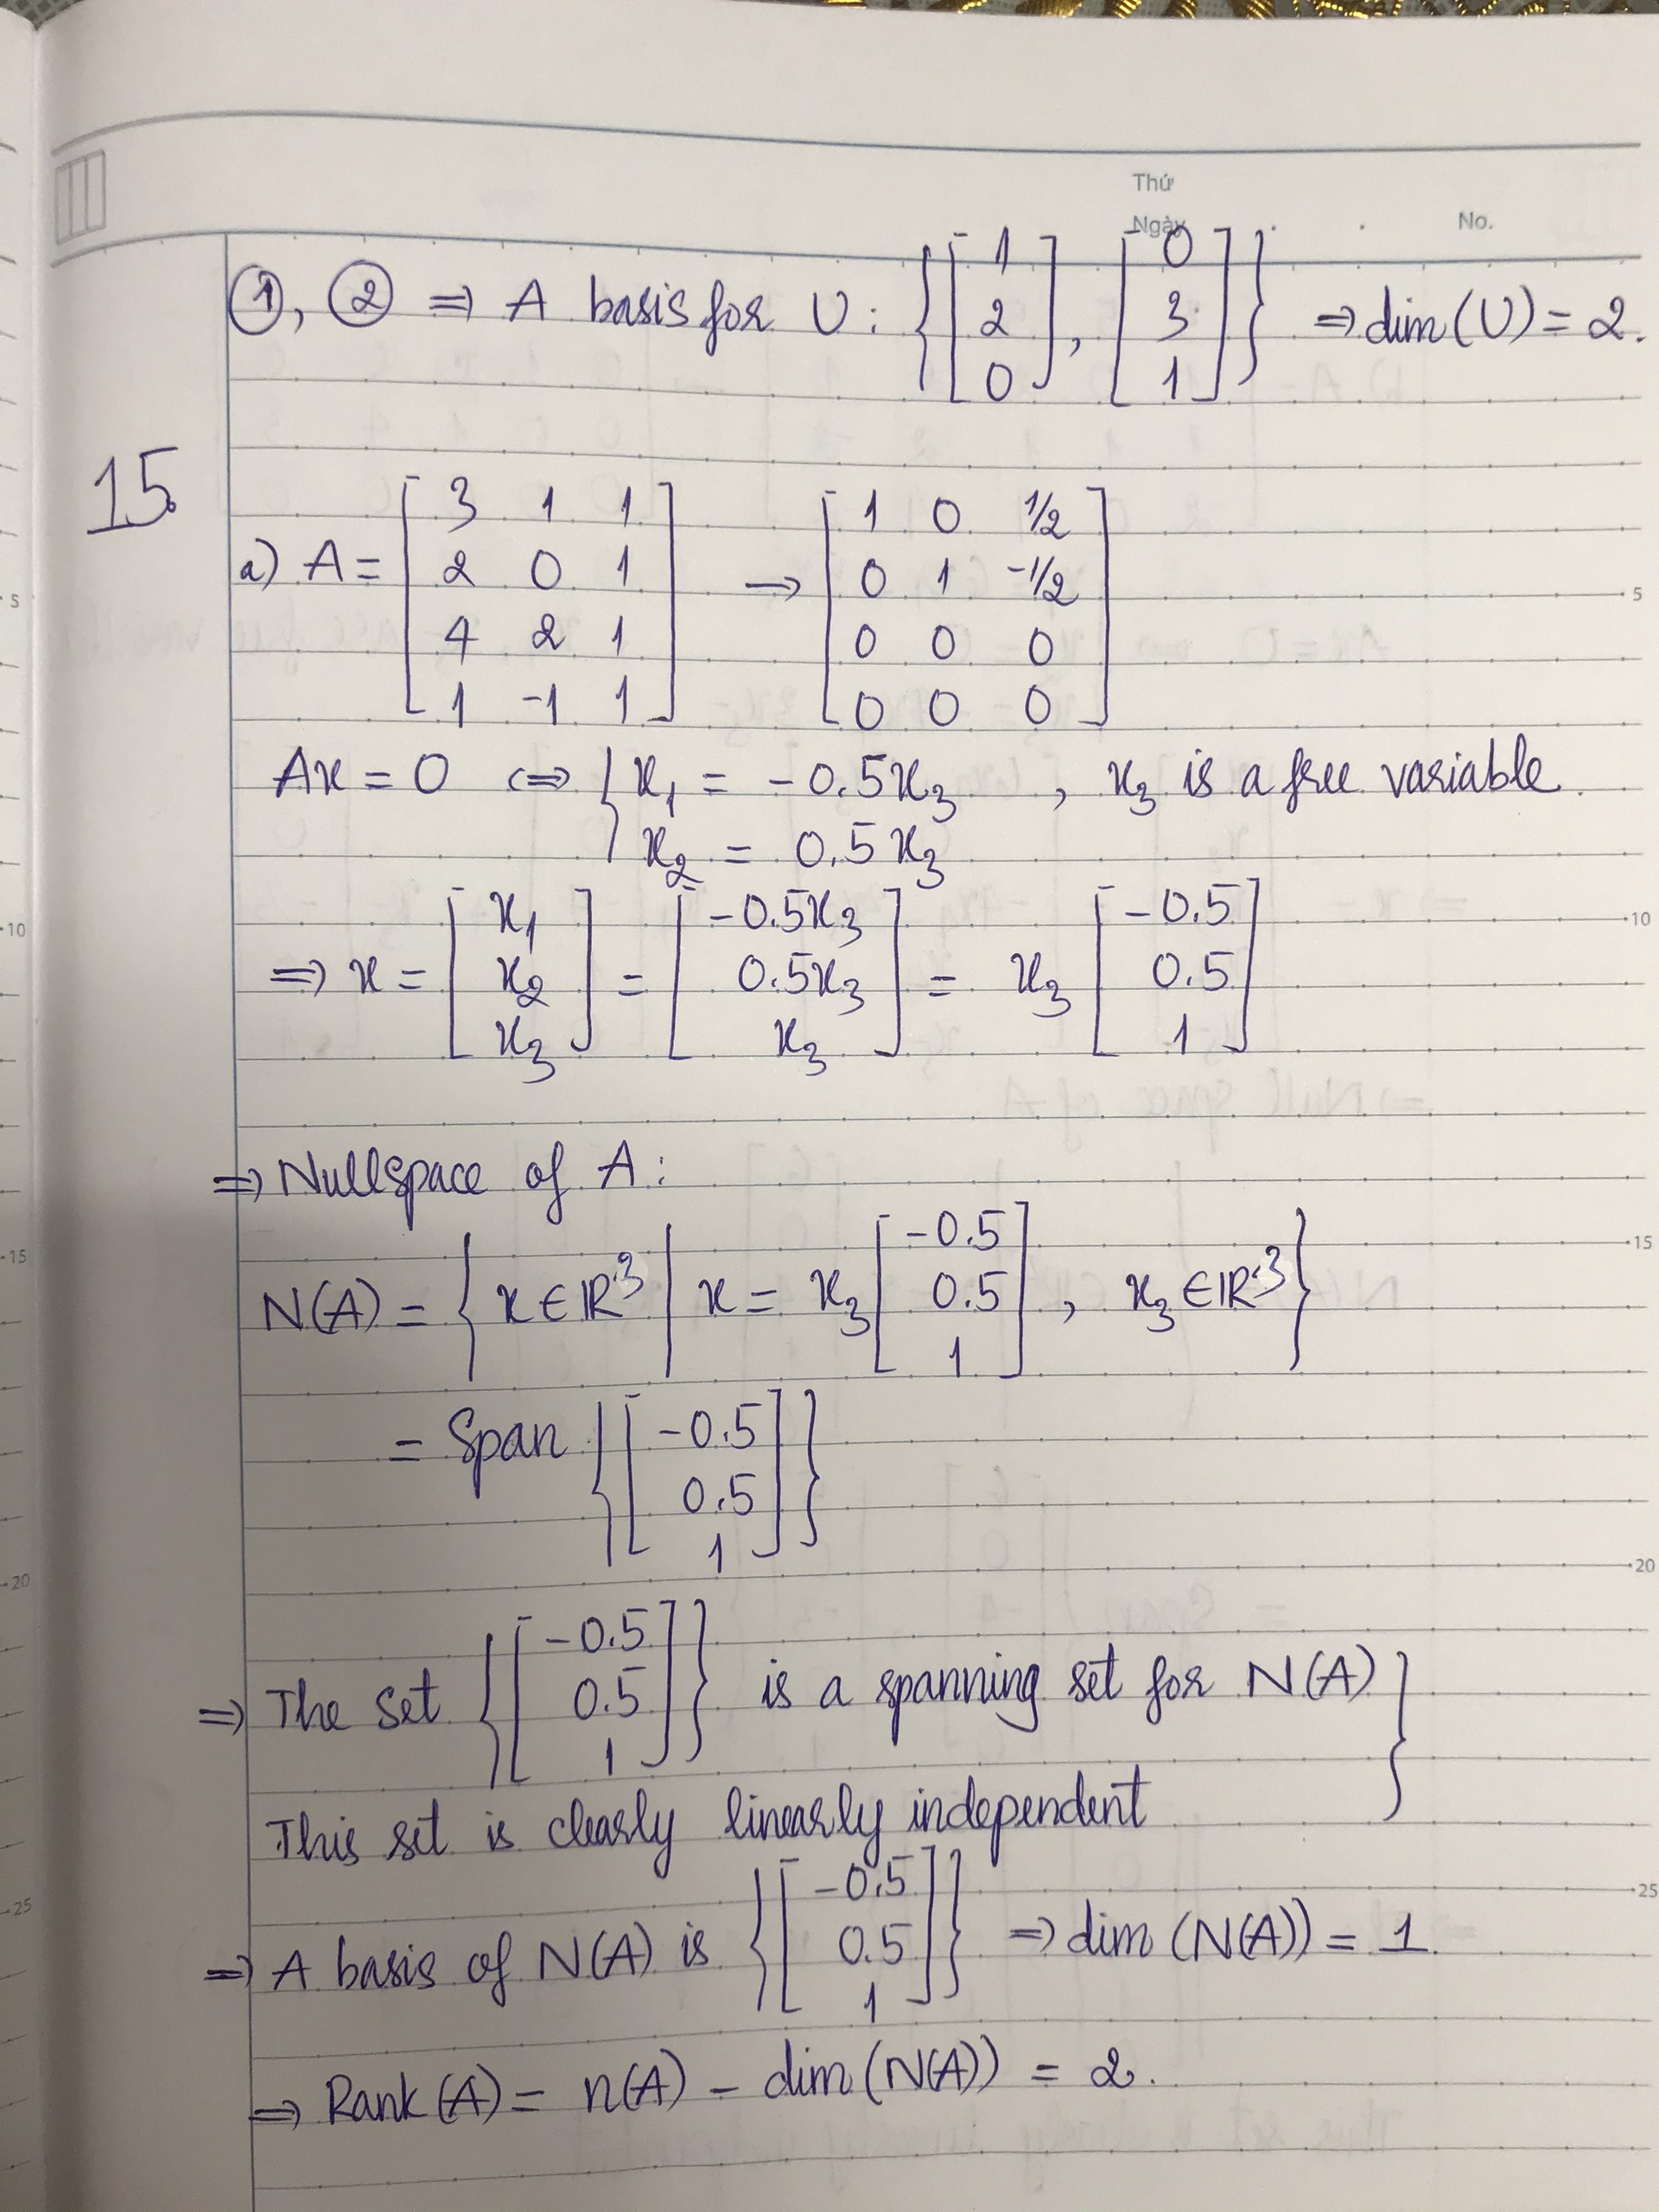 Thứ
Ngày No.
①, ② ⇒ A basis for U: {[1 2 0], [0 3 1]} ⇒ dim(U) = 2.
15.
a) A = [3 1 1; 2 0 1; 4 2 1; 1 -1 1] → [1 0 1/2; 0 1 -1/2; 0 0 0; 0 0 0]
Ax = 0 ⇔ { x₁ = -0.5x₃ , x₃ is a free variable.
x₂ = 0.5x₃
⇒ x = [x₁ x₂ x₃] = [-0.5x₃ 0.5x₃ x₃] = x₃ [-0.5 0.5 1]
⇒ Nullspace of A:
N(A) = { x ∈ ℝ³ | x = x₃ [-0.5 0.5 1], x₃ ∈ ℝ³ }
= Span {[-0.5 0.5 1]}
⇒ The set {[-0.5 0.5 1]} is a spanning set for N(A) }
This set is clearly linearly independent
⇒ A basis of N(A) is {[-0.5 0.5 1]} ⇒ dim (N(A)) = 1.
⇒ Rank(A) = n(A) - dim(N(A)) = 2.
5
10
15
20
25